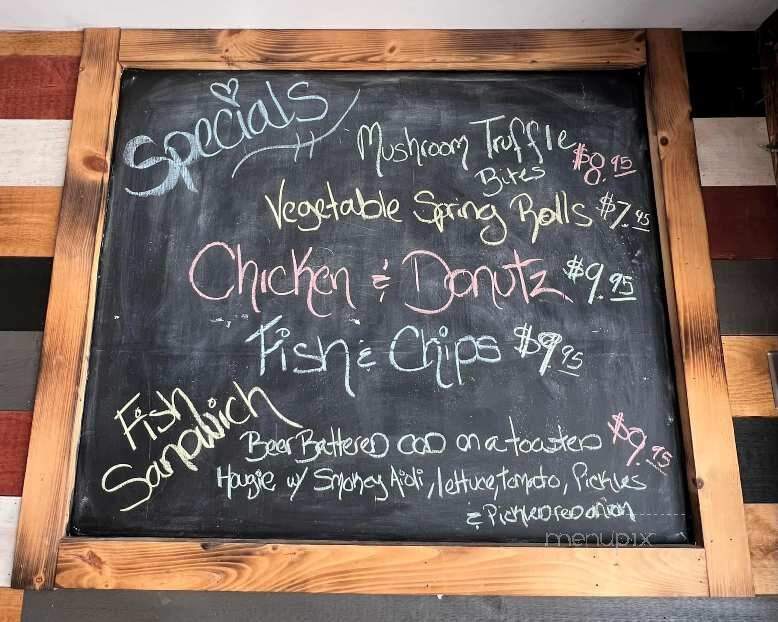 Specials
Mushroom Truffle $8.95
Bites
Vegetable Spring Rolls $7.95
Chicken & Donutz $9.95
Fish & Chips $9.95
Fish
Sandwich
Beer Battered COD on a toasted $9.95
Hougie w/ Smokey Aioli, lettuce, tomato, Pickles
& Pickled red onion
menupix